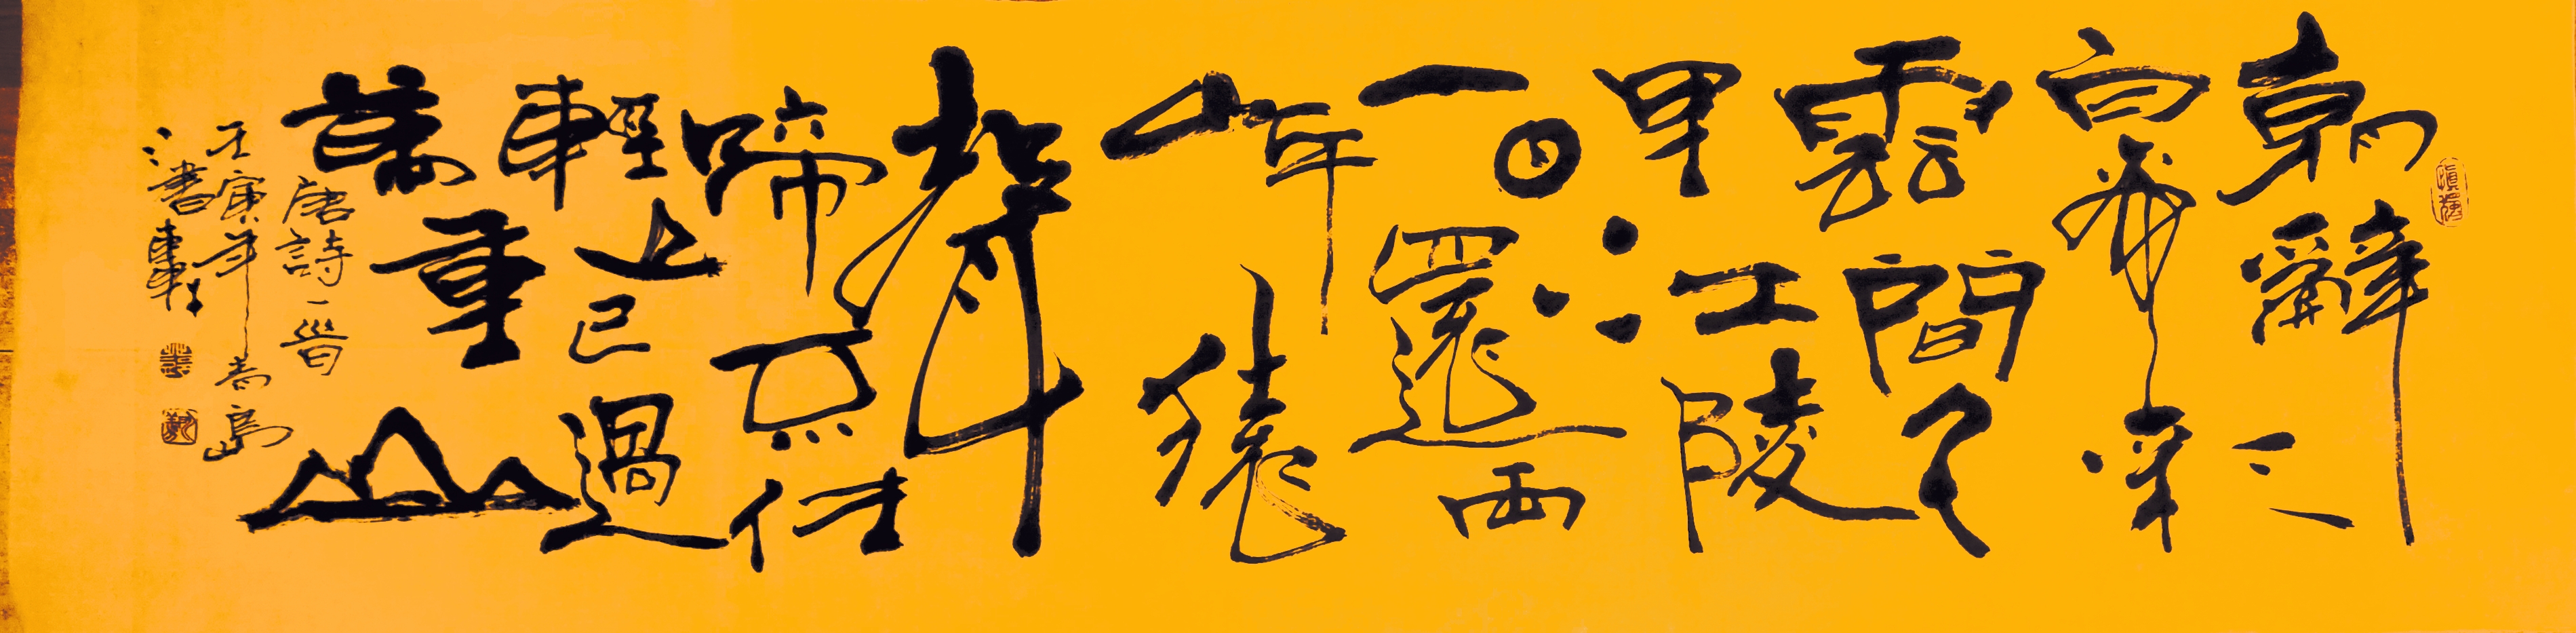 朝辭
白帝彩
雲間千
里江陵
一日還兩
岸猿
聲
啼不住
輕舟已過
萬重山
唐詩一首
壬寅年青島
書